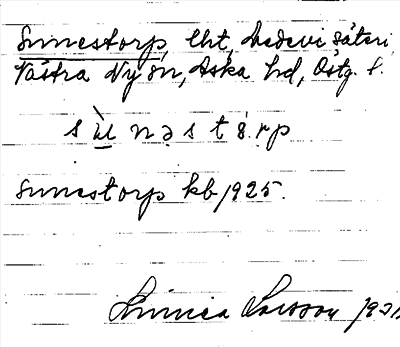 Sunestorp, lht, Medevi säteri,
Västra Ny sn, Aska hd, Östg. l.
s ù n ə s t ȯ. r p
Sunestorp kb 1925.
Linnea Larsson 193